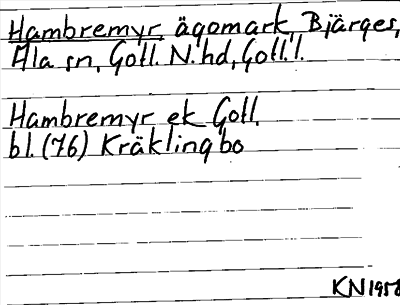 Hambremyr, ägomark, Bjärges,
Ala sn, Gotl. N. hd, Gotl. l.
Hambremyr ek Gotl.
bl. (76) Kräklingbo
KN 1958